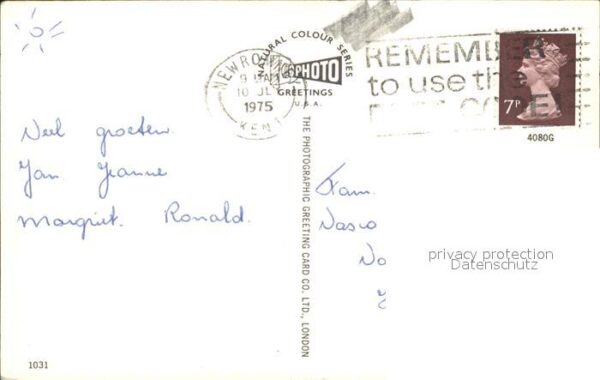 NATURAL COLOUR SERIES
PHOTO
GREETINGS
U.S.A.
NEW ROMNEY
10 JL
1975
KENT
REMEMBER
to use the
POST CODE
7P
4080G
Veel groeten
Jan Jeanne
Margriet. Ronald.
THE PHOTOGRAPHIC GREETING CARD CO. LTD., LONDON
Fam.
privacy protection
Datenschutz
1031